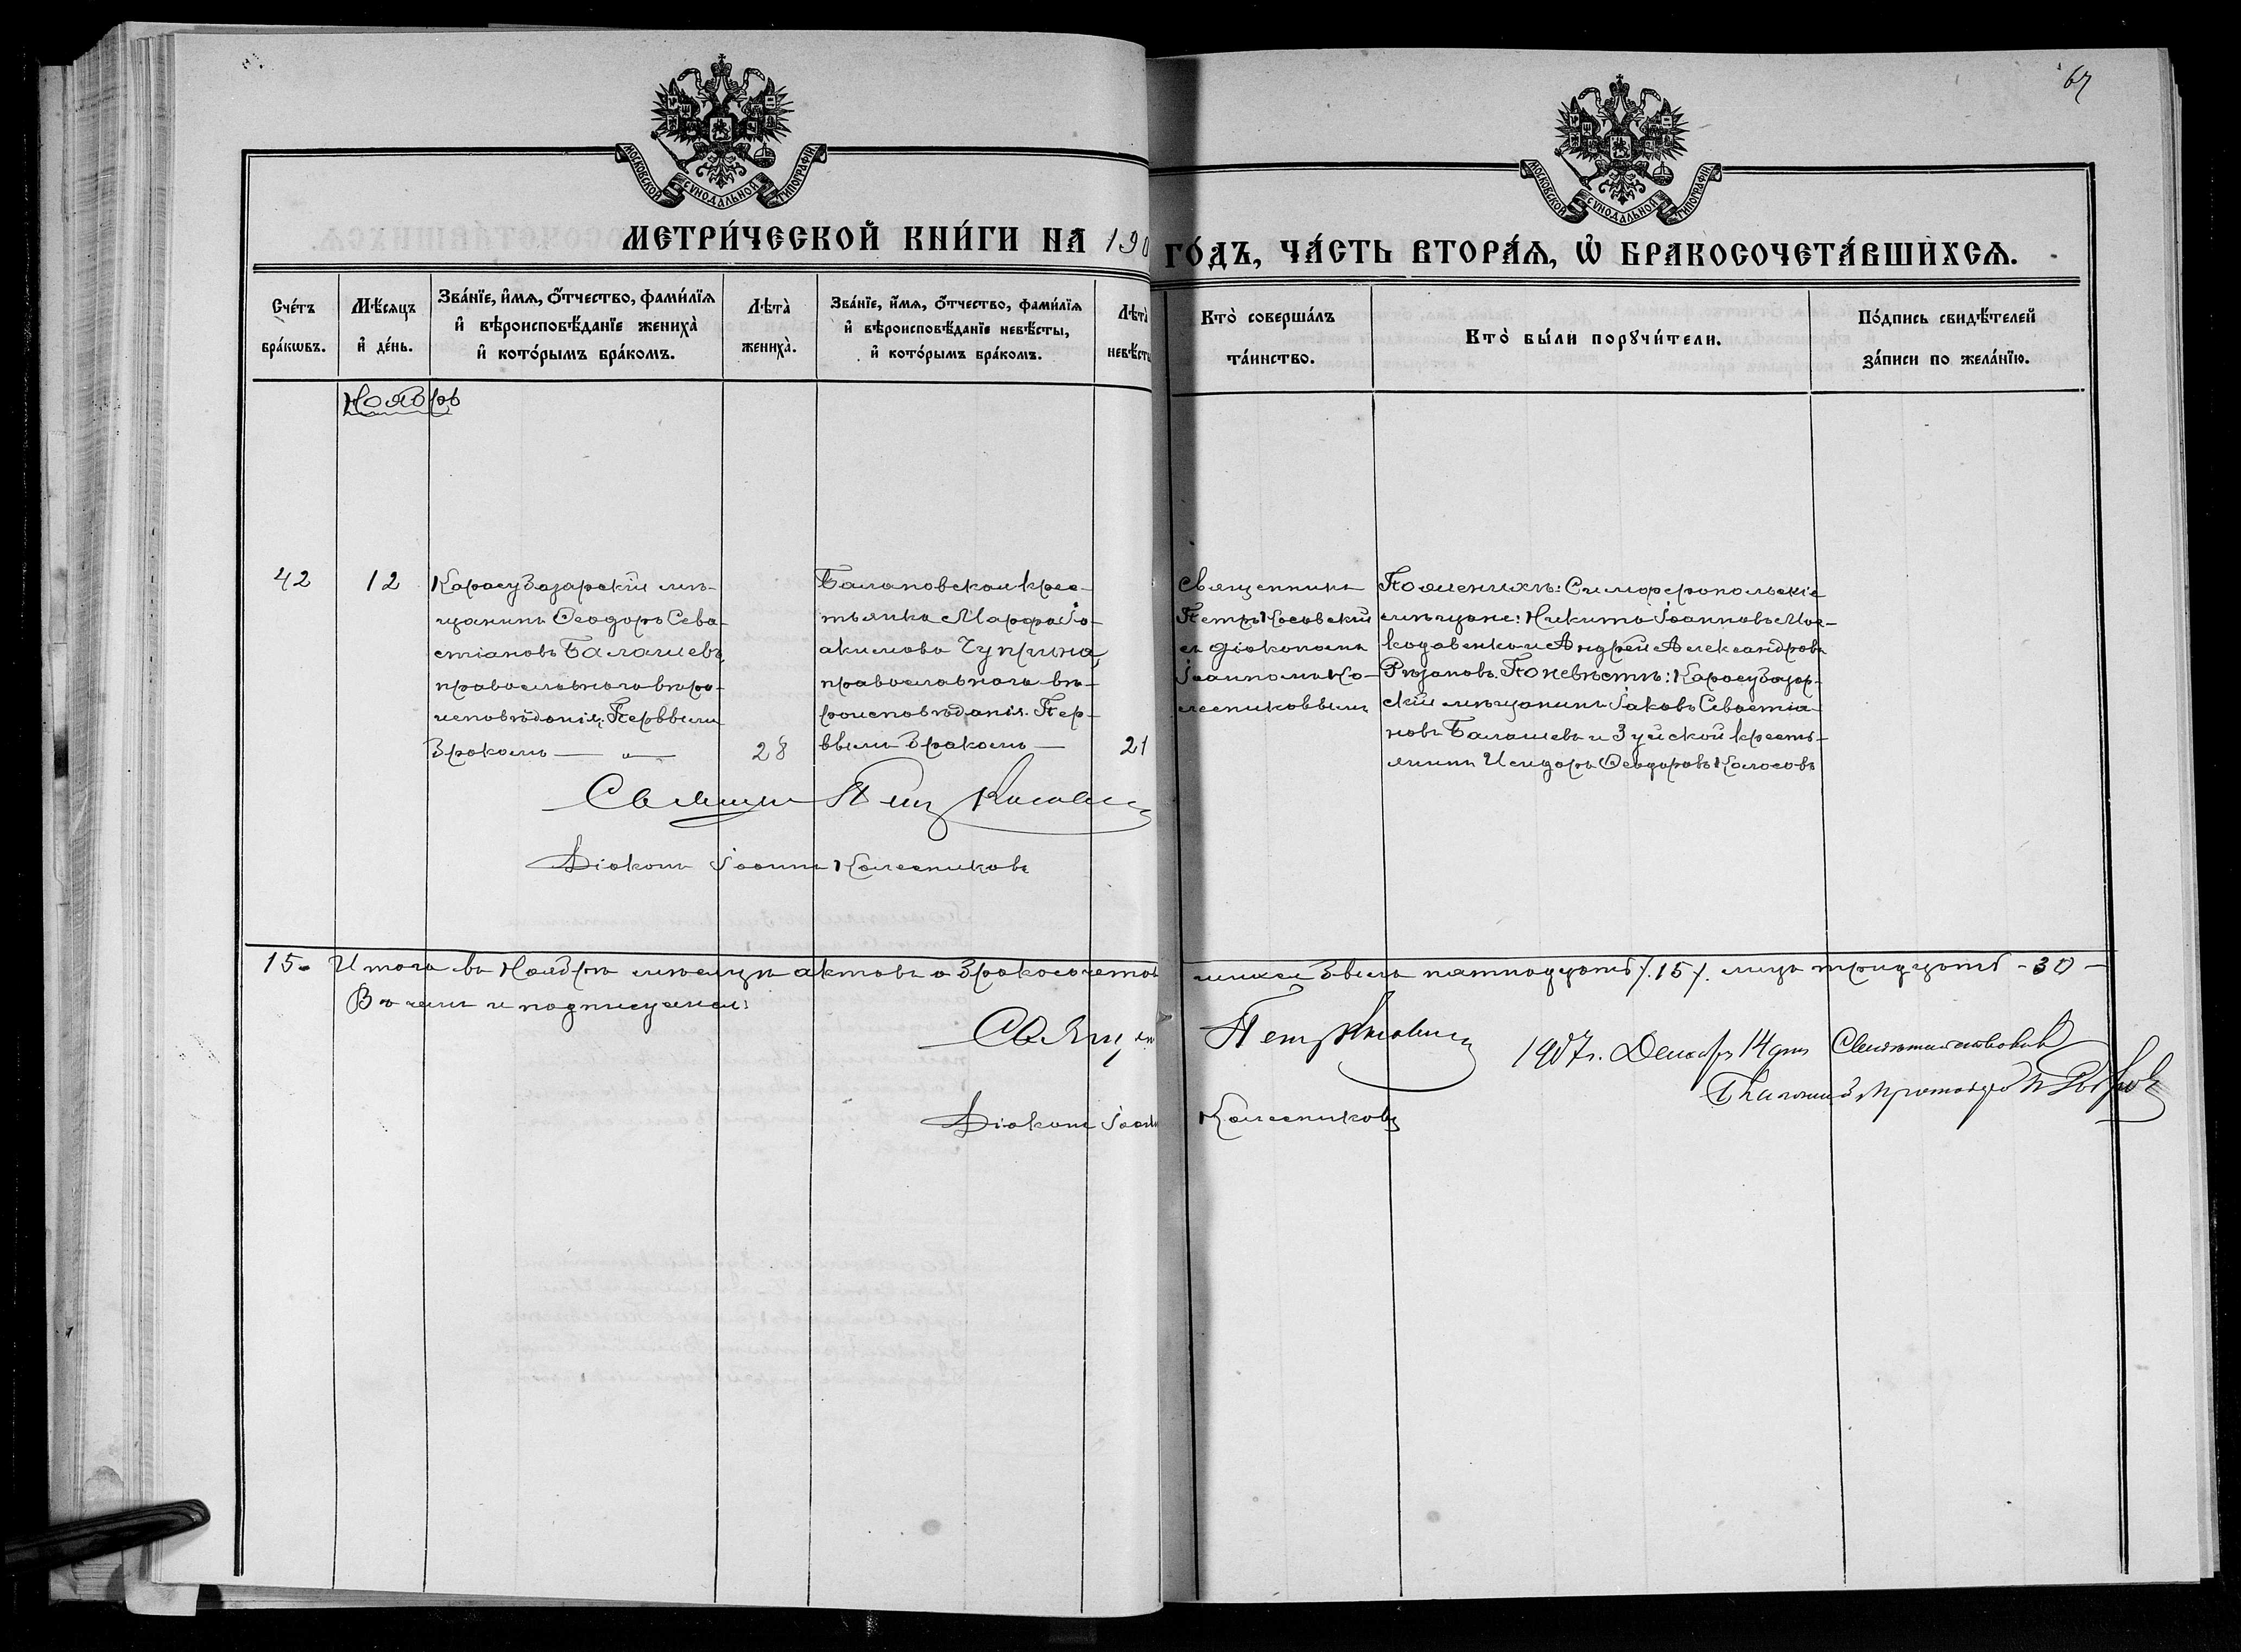 67
МОСКОВСКОЙ СѴНОДАЛЬНОЙ ТИПОГРАФІИ
МОСКОВСКОЙ СѴНОДАЛЬНОЙ ТИПОГРАФІИ
МЕТРИ́ЧЕСКОЙ КНИ́ГИ НА 190 ГО́ДЪ, ЧА́СТЬ ВТОРА́Ѧ, Ѽ БРАКОСОЧЕТА́ВШИХСѦ.
Сче́тъ бра́кѡвъ.
Мѣ́сяцъ и҆ де́нь.
Зва́нїе, и҆́мѧ, ѻ҆́тчество, фами́лїѧ
и҆ вѣроисповѣ́данїе жениха̀
и҆ кото́рымъ бра́комъ.
Лѣта̀ жениха̀.
Зва́нїе, и҆́мѧ, ѻ҆́тчество, фами́лїѧ
и҆ вѣроисповѣ́данїе невѣ́сты,
и҆ кото́рымъ бра́комъ.
Лѣта̀ невѣ́сты
Кто̀ соверша́лъ та́инство.
Кто̀ бы́ли порꙋчи́тели.
По́дпись свидѣ́телей за́писи по жела́нїю.
Ноябрь
42
12
Карасубазарскій мѣ-
щанинъ Ѳеодоръ Сева-
стіановъ Балашевъ,
православнаго вѣро-
исповѣданія, Первымъ
бракомъ — „ —
28
Балановская крес-
тьянка Марѳа Іо-
акимова Чуприна,
православнаго вѣ-
роисповѣданія. Пер-
вымъ бракомъ —
21
Священникъ
Петръ Косовскій
съ діакономъ
Іоанномъ Ко-
лесниковымъ
По женихѣ: Симферопольскіе
мѣщане: Никита Іоанновъ Мос-
кодавенко и Андрей Александровъ
Рѣзановъ. По невѣстѣ: Карасубазар-
скій мѣщанинъ Іаковъ Севастіа-
новъ Балашевъ и Зуйской кресть-
янинъ Исидоръ Ѳеодоровъ Колосовъ
Священ Петръ Косовскій
Діаконъ Іоаннъ Колесниковъ
15. Итого въ Ноябрѣ мѣсяцѣ актовъ о бракосочетав шихся было пятнадцать /.15/. лицъ тридцать - 30 -
В чемъ и подписуемся:
Священ Петръ Косовскій
Діаконъ Іоаннъ Колесниковъ
1907 г. Декабря 14 дня Свидѣтельствовалъ
Благочинный Протоіерей